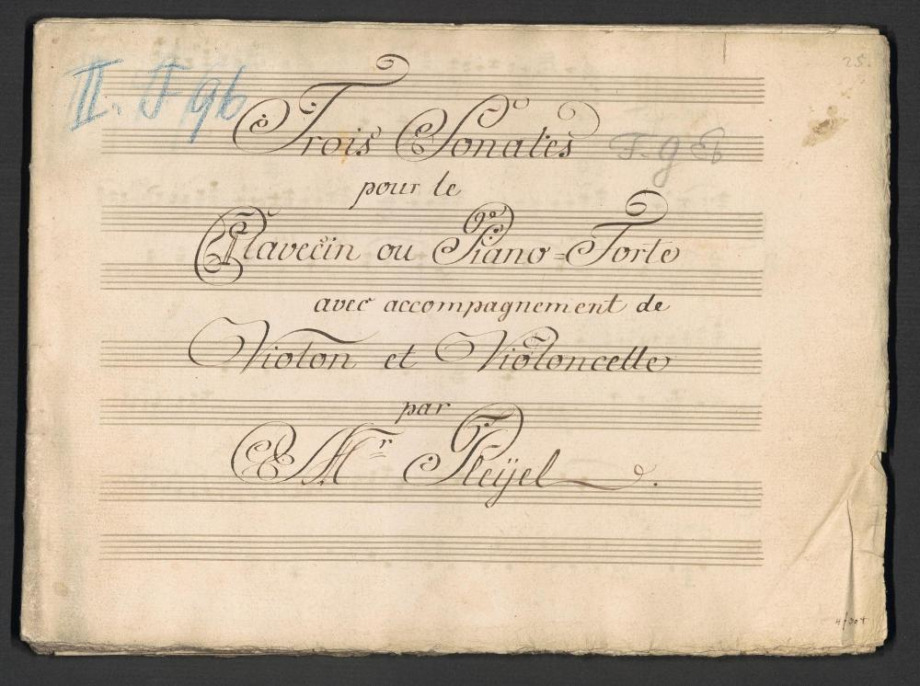 25.
II. F 96
Trois Sonates
F. 9 Eb
pour le
Clavecin ou Piano=Forte
avec accompagnement de
Violon et Violoncelle
par
Mr Pleÿel